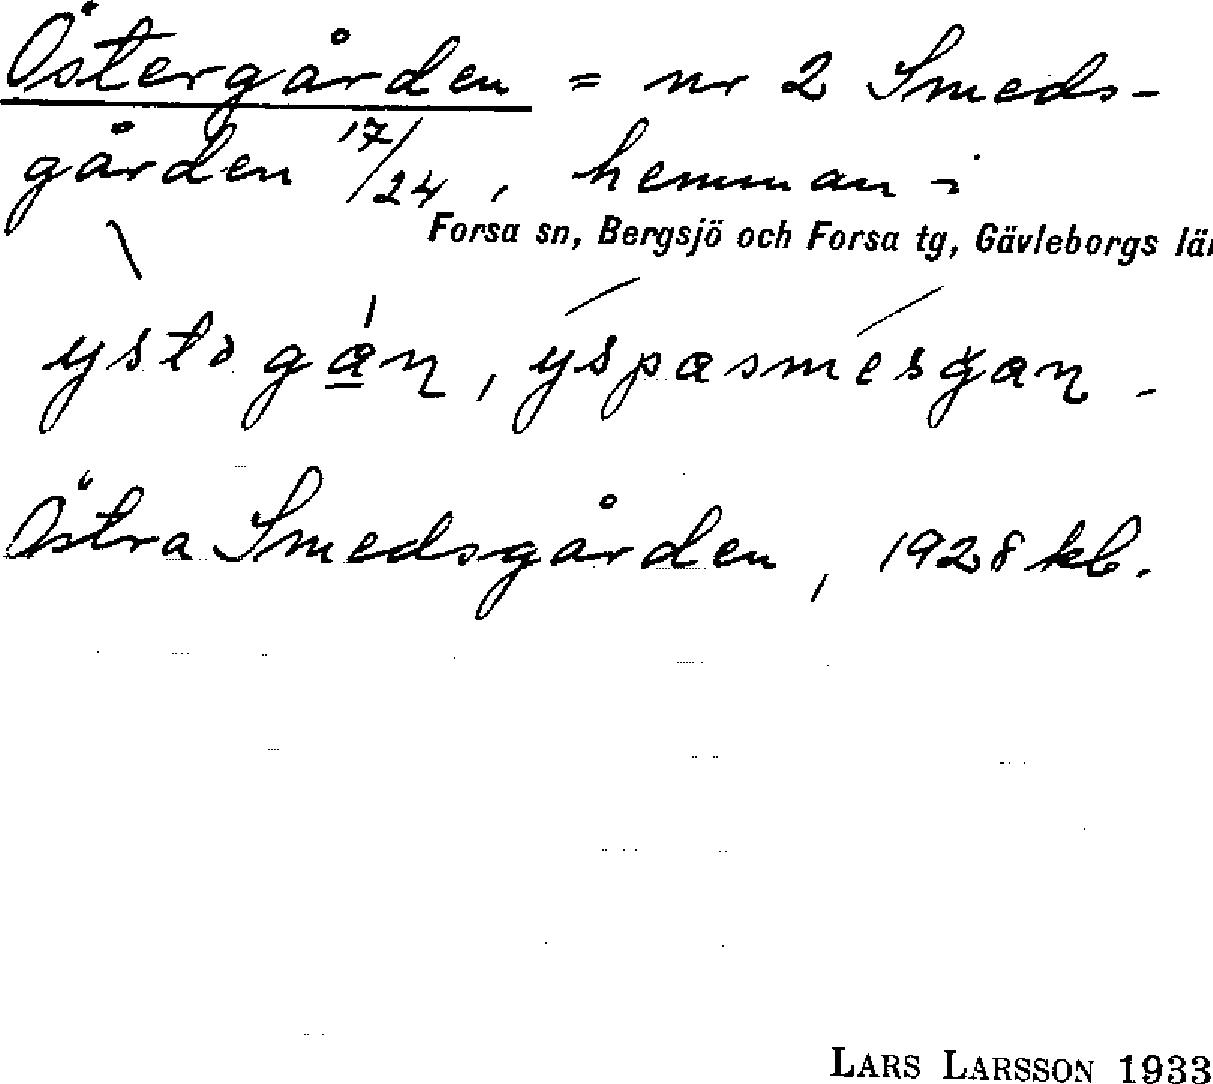 Östergården = nr 2 Smeds-
gården 17/24, hemman i
Forsa sn, Bergsjö och Forsa tg, Gävleborgs län
Östra Smedsgården, 1928 kb.
LARS LARSSON 1933